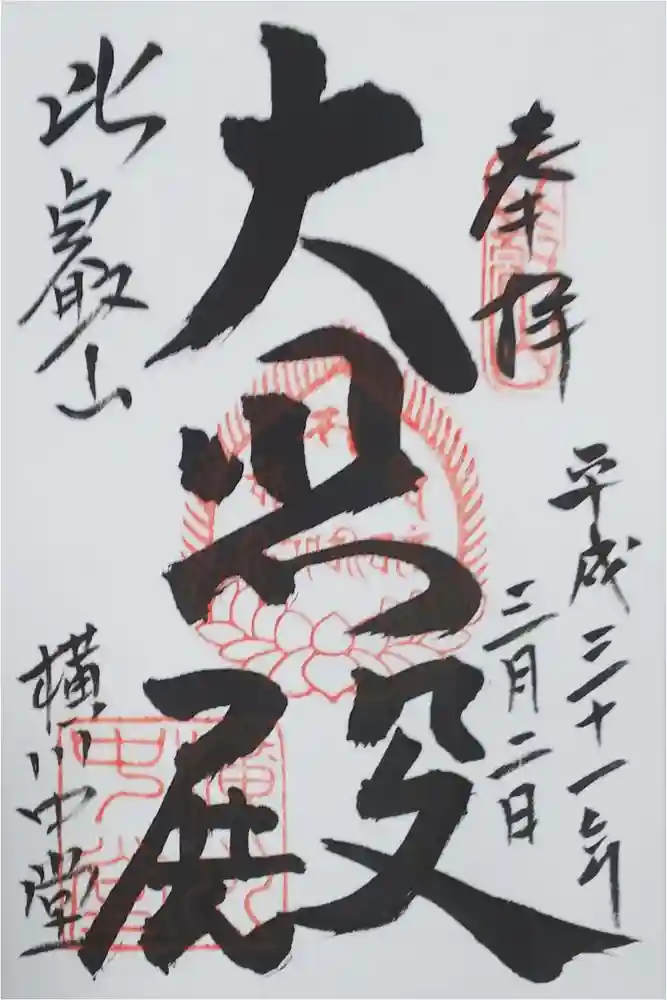 奉拝
平成三十一年
三月二日
大悲殿
比叡山
横川中堂